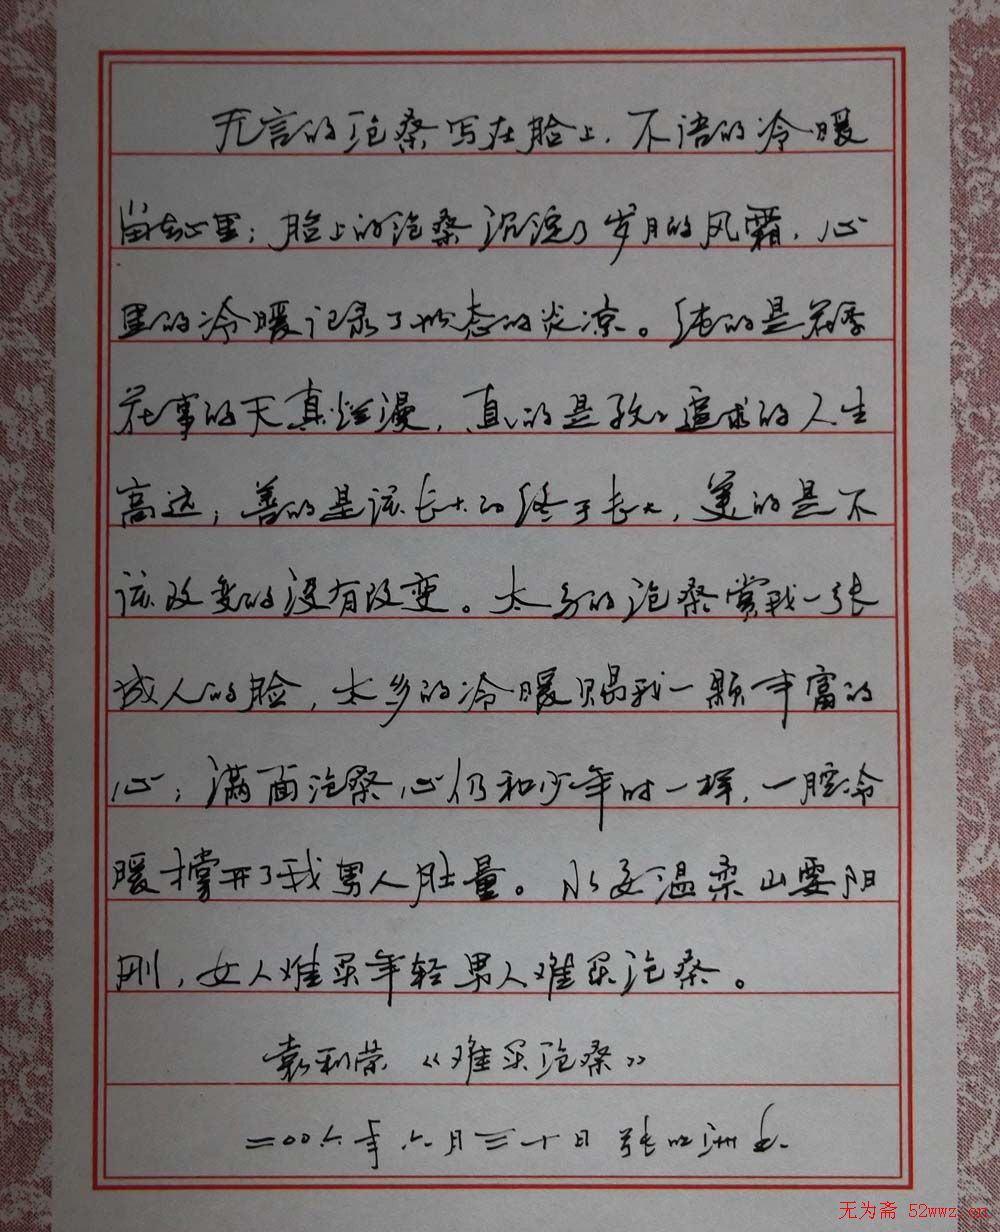 无言的沧桑写在脸上，不语的冷暖
留在心里；脸上的沧桑沉淀了岁月的风霜，心
里的冷暖记录了世态的炎凉。纯的是花季
花事的天真烂漫，真的是孜孜追求的人生
高远，善的是该长大的终于长大，美的是不
该改变的没有改变。太多的沧桑赏我一张
成人的脸，太多的冷暖赐我一颗丰富的
心；满面沧桑心仍和少年时一样，一腔冷
暖撑开了我男人肚量。水要温柔山要阳
刚，女人难买年轻男人难买沧桑。
袁利荣《难买沧桑》
二〇〇六年六月三十日 张 洲书
无为斋 52wwz.cn